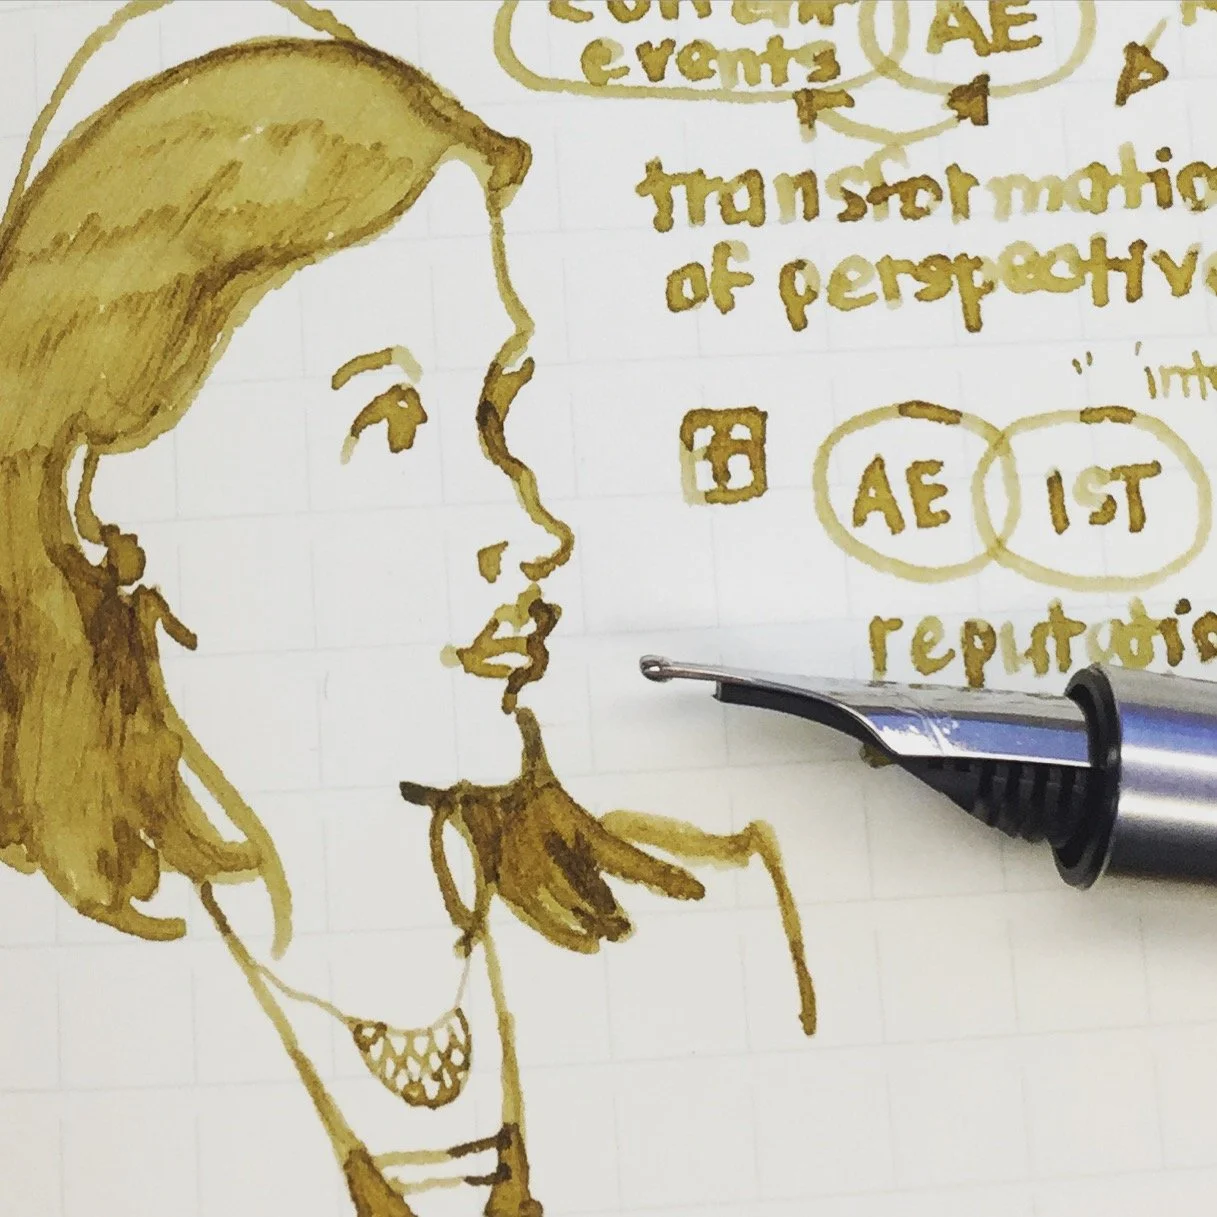 events
AE
transformatio
of perspective
AE
IST
reputatio